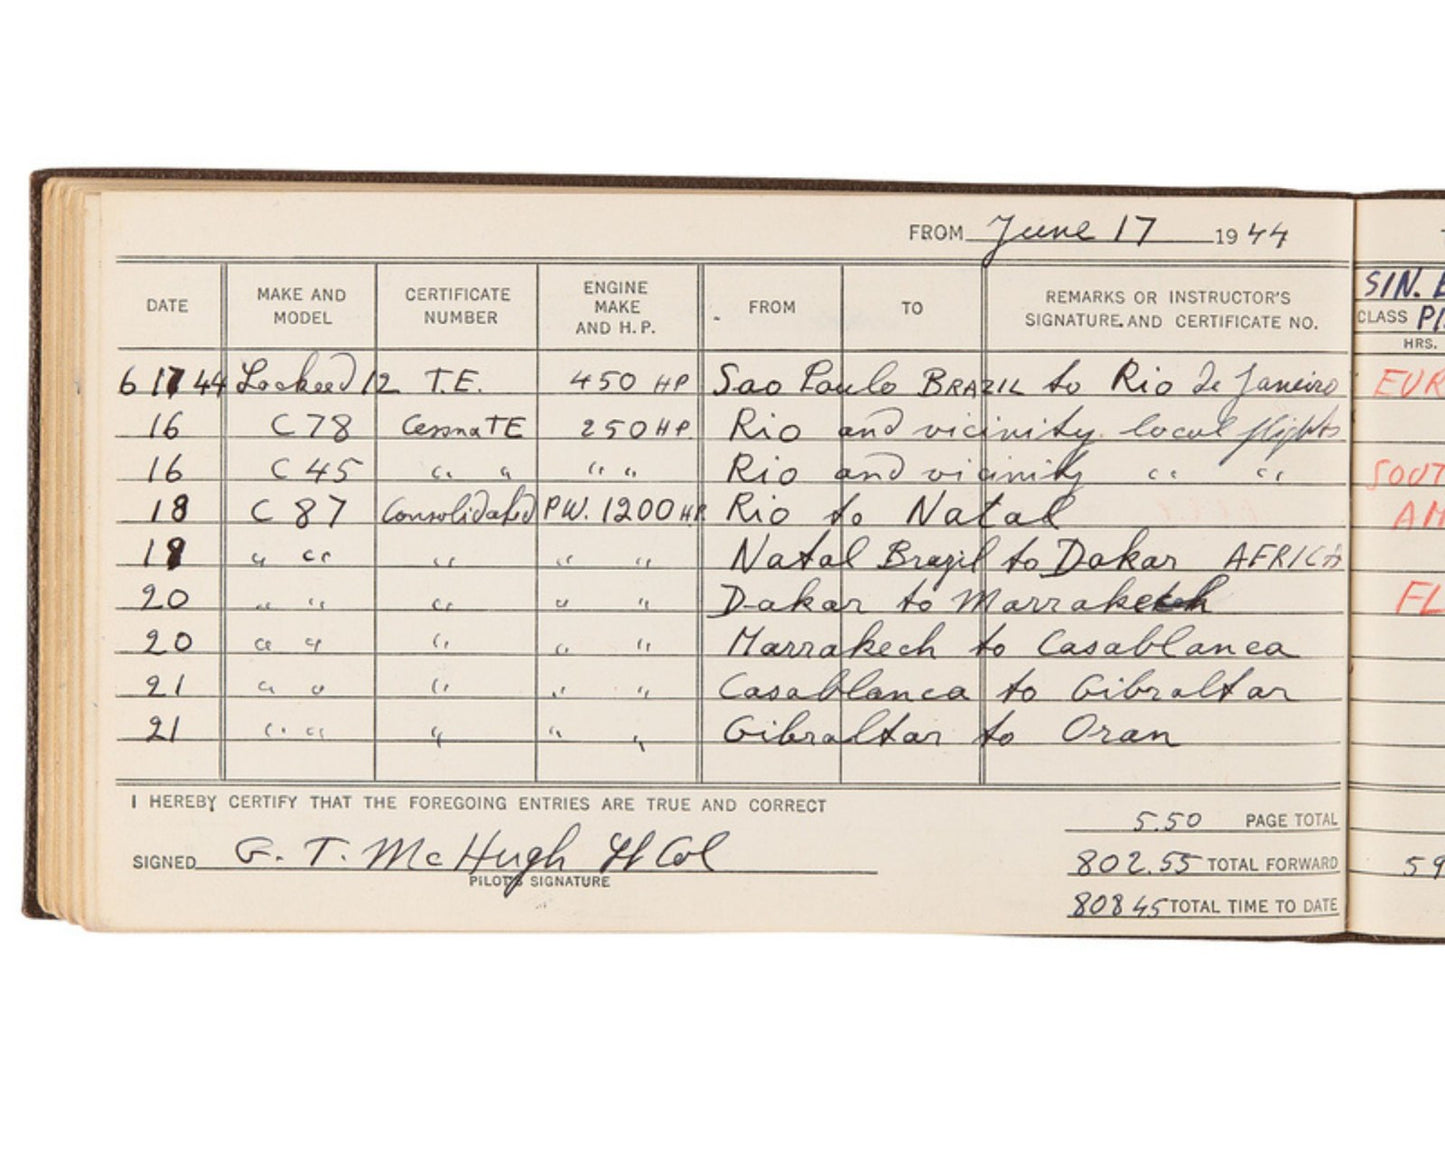 FROM June 17 1944
SIN. E
DATE MAKE AND MODEL CERTIFICATE NUMBER ENGINE MAKE AND H.P. FROM TO REMARKS OR INSTRUCTOR'S SIGNATURE AND CERTIFICATE NO.
CLASS
HRS.
6 17 44 Lockeed 12 T.E. 450 HP Sao Paulo BRAZIL to Rio de Janeiro EUR
16 C78 Cessna TE 250 HP. Rio and vicinity local flights
16 C45 " " " " Rio and vicinity " " SOUT
18 C 87 Consolidated PW. 1200 H.P. Rio to Natal AM
" " " " " Natal Brazil to Dakar AFRICA
20 " " " " " Dakar to Marrakech FL
20 " " " " " Marrakech to Casablanca
21 " " " " " Casablanca to Gibraltar
21 " " " " " Gibraltar to Oran
I HEREBY CERTIFY THAT THE FOREGOING ENTRIES ARE TRUE AND CORRECT
5.50 PAGE TOTAL
SIGNED G. T. McHugh Lt Col
802.55 TOTAL FORWARD 59
PILOT'S SIGNATURE
808 45 TOTAL TIME TO DATE